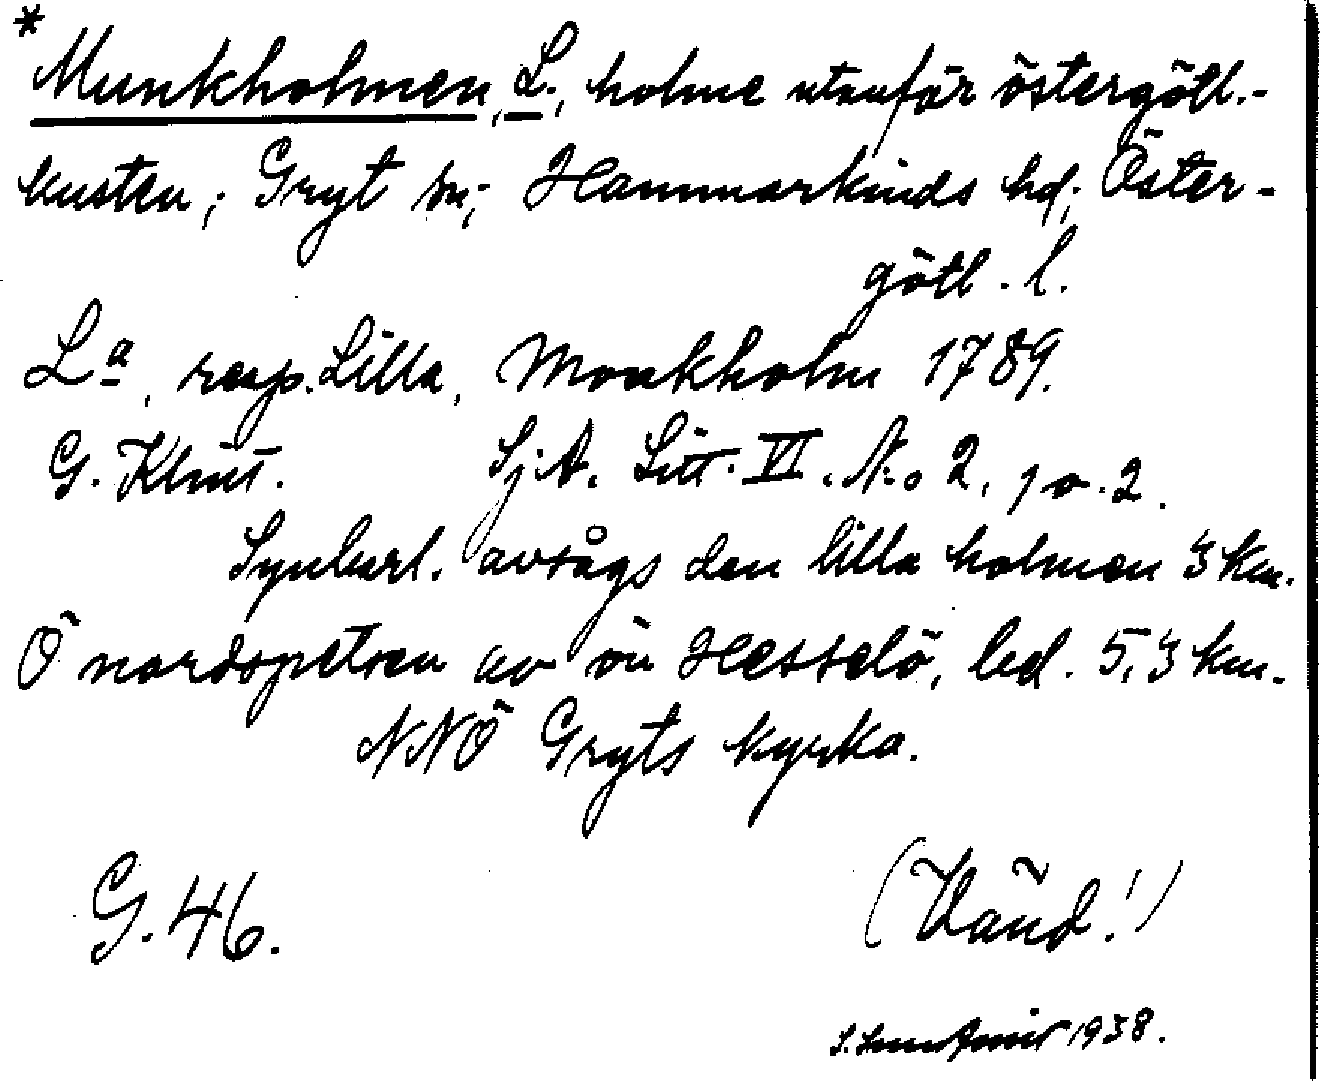 *Munkholmen, L., holme utanför östergötl.-
kusten; Gryt sn; Hammarkinds hd; Öster-
götl. l.
La, resp. Lilla, Monkholm 1789.
G. Klint. Sj.A. Litt. VI. No 2, 2.
Synbarl. avsågs den lilla holmen 3 km.
Ö nordspetsen av ön Hesselö, bel. 5,3 km.
NNÖ Gryts kyrka.
G. 46. (Vänd!)
1938.